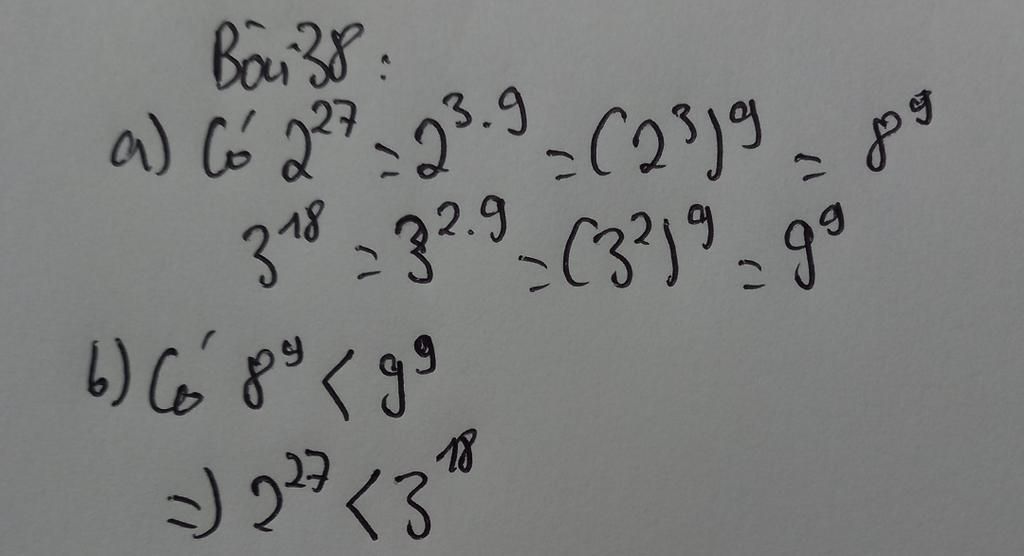 Bài 38:
a) Có 2²⁷ = 2³·⁹ = (2³)⁹ = 8⁹
3¹⁸ = 3²·⁹ = (3²)⁹ = 9⁹
b) Có 8⁹ < 9⁹
=) 2²⁷ < 3¹⁸